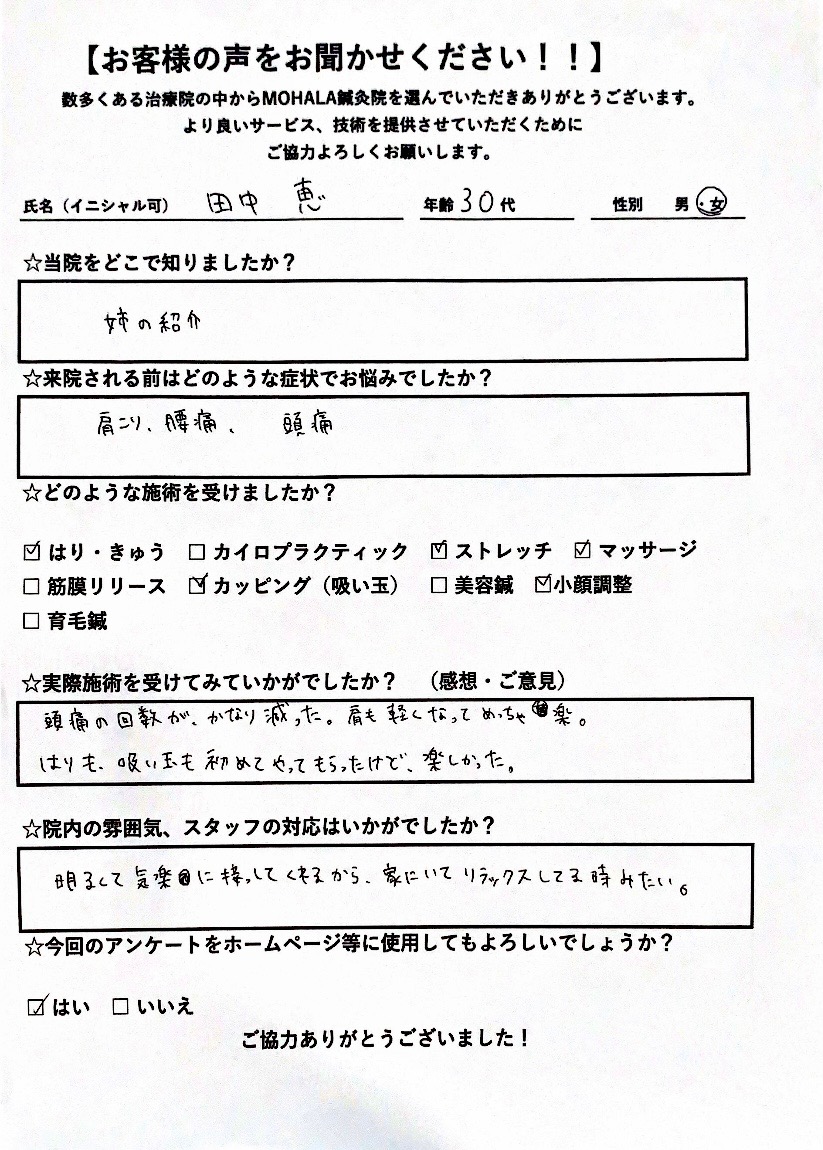 【お客様の声をお聞かせください！！】
数多くある治療院の中からMOHALA鍼灸院を選んでいただきありがとうございます。
より良いサービス、技術を提供させていただくために
ご協力よろしくお願いします。
氏名（イニシャル可） 田中 恵 年齢 30 代 性別 男・女
☆当院をどこで知りましたか？
姉の紹介
☆来院される前はどのような症状でお悩みでしたか？
肩こり、腰痛、 頭痛
☆どのような施術を受けましたか？
☑ はり・きゅう ☐ カイロプラクティック ☑ ストレッチ ☑ マッサージ
☐ 筋膜リリース ☑ カッピング（吸い玉） ☐ 美容鍼 ☑ 小顔調整
☐ 育毛鍼
☆実際施術を受けてみていかがでしたか？ （感想・ご意見）
頭痛の回数が、かなり減った。肩も軽くなってめっちゃ楽。
はりも、吸い玉も初めてやってもらったけど、楽しかった。
☆院内の雰囲気、スタッフの対応はいかがでしたか？
明るくて気楽に接してくれるから、家にいてリラックスしてる時みたい。
☆今回のアンケートをホームページ等に使用してもよろしいでしょうか？
☑ はい ☐ いいえ
ご協力ありがとうございました！